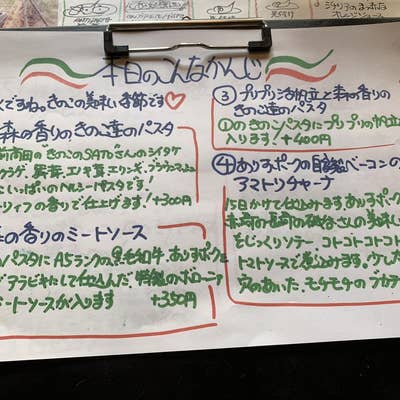 本日のこんなかんじ
くですね。きのこの美味しい季節です♡
森の香りのきのこ達のパスタ
前高田の"きのこのSATO"さんのシイタケ
クラゲ、舞茸、エノキ茸、エリンギ、ブラウン
いっぱいのヘルシーパスタです!
トリュフの香りで仕上げます! +300円
の香りのミートソース
パスタにA5ランクの黒毛和牛、ありすポーク
アラビキにして仕込んだ、特製のボロ
ミートソースが入ります +350円
③ プリプリ活帆立と森の香りの
きのこ達のパスタ
①のきのこパスタにプリプリの帆立
入ります! +400円
④ ありすポークの自家製ベーコンの
アマトリチャーナ
15日かけて仕込みます。ありすポーク
さんの美味し
をじっくりソテー、コトコトコトコト
トマトソースで煮込みます。
穴のあいた、モチモチのブカテ